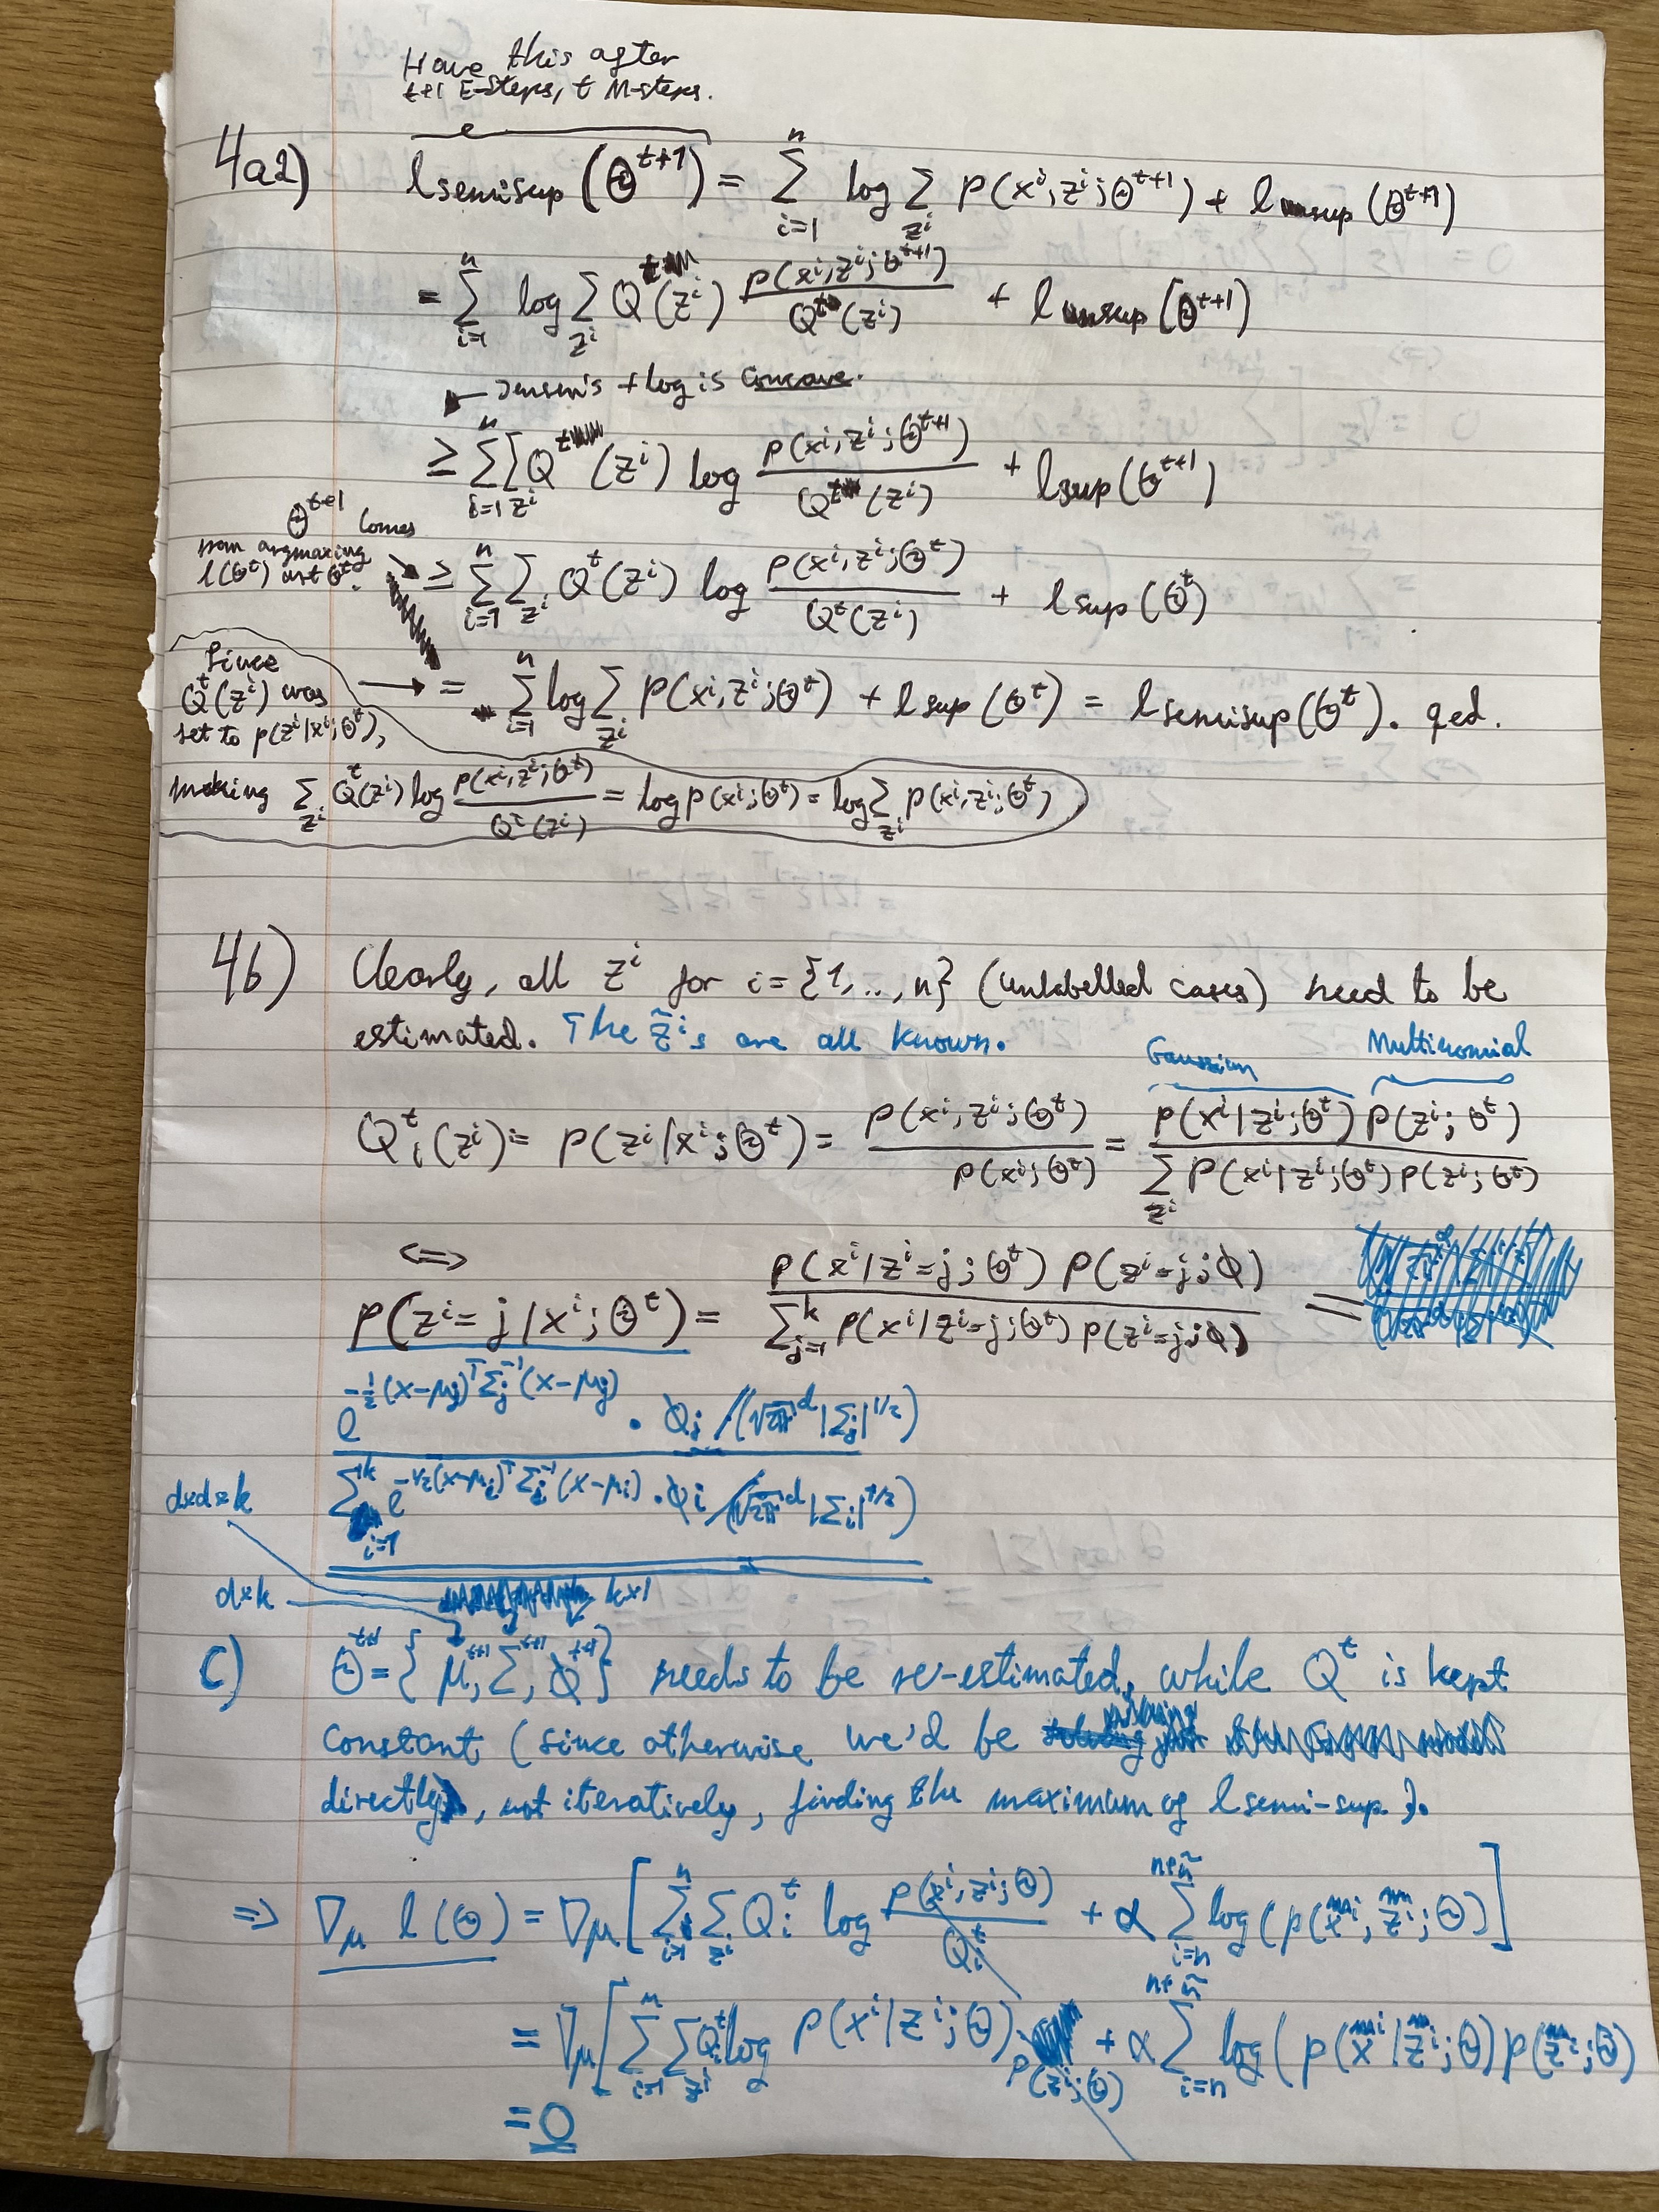 Have this after
t+1 E-steps, t M-steps.
4a2) l semisup (Θ^{t+1}) = Σ_{i=1}^{n} log Σ_{z^i} p(x^i, z^i; Θ^{t+1}) + l sup (Θ^{t+1})
= Σ_{i=1}^{n} log Σ_{z^i} Q^t(z^i) p(x^i, z^i; Θ^{t+1}) / Q^t(z^i) + l sup (Θ^{t+1})
← Jensen's + log is concave.
≥ Σ_{i=1}^{n} Σ_{z^i} Q^t(z^i) log p(x^i, z^i; Θ^{t+1}) / Q^t(z^i) + l sup (Θ^{t+1})
Θ^{t+1} comes
from argmaxing
l(Θ^t) wrt Θ^t.
≥ Σ_{i=1}^{n} Σ_{z^i} Q^t(z^i) log p(x^i, z^i; Θ^t) / Q^t(z^i) + l sup (Θ^t)
Since
Q^t(z^i) was
set to p(z^i | x^i; Θ^t),
→ = Σ_{i=1}^{n} log Σ_{z^i} p(x^i, z^i; Θ^t) + l sup (Θ^t) = l semisup (Θ^t). qed.
making Σ_{z^i} Q^t(z^i) log p(x^i, z^i; Θ^t) / Q^t(z^i) = log p(x^i; Θ^t) = log Σ_{z^i} p(x^i, z^i; Θ^t)
4b) Clearly, all z^i for i = {1, .., n} (unlabelled cases) need to be
estimated. The z̃^i s are all known.
Gaussian Multinomial
Q^t_i(z^i) = p(z^i | x^i; Θ^t) = p(x^i, z^i; Θ^t) / p(x^i; Θ^t) = p(x^i | z^i; Θ^t) p(z^i; Θ^t) / Σ_{z^i} p(x^i | z^i; Θ^t) p(z^i; Θ^t)
⇔
p(z^i = j | x^i; Θ^t) = p(x^i | z^i = j; Θ^t) p(z^i = j; ϕ) / Σ_{j=1}^{k} p(x^i | z^i = j; Θ^t) p(z^i = j; ϕ) =
e^{-½ (x-μ_j)^T Σ_j^{-1} (x-μ_j)} · ϕ_j / (√2π^d |Σ_j|^{1/2})
Σ_{i=1}^{k} e^{-1/2 (x-μ_i)^T Σ_i^{-1} (x-μ_i)} · ϕ_i / (√2π^d |Σ_i|^{1/2})
d×d×k
d×k k×1
c) Θ^{t+1} = {μ^{t+1}, Σ^{t+1}, ϕ^{t+1}} needs to be re-estimated, while Q^t is kept
constant (since otherwise we'd be
directly, not iteratively, finding the maximum of l semi-sup.).
⇒ ∇_μ l(Θ) = ∇_μ [ Σ_{i=1}^{n} Σ_{z^i} Q_i^t log p(x^i, z^i; Θ) / Q_i^t + α Σ_{i=n}^{n+ñ} log(p(x̃^i, z̃^i; Θ)) ]
= ∇_μ [ Σ_{i=1}^{n} Σ_{z^i} Q_i^t log p(x^i | z^i; Θ) p(z^i; Θ) + α Σ_{i=n}^{n+ñ} log( p(x̃^i | z̃^i; Θ) p(z̃^i; Θ)
= 0